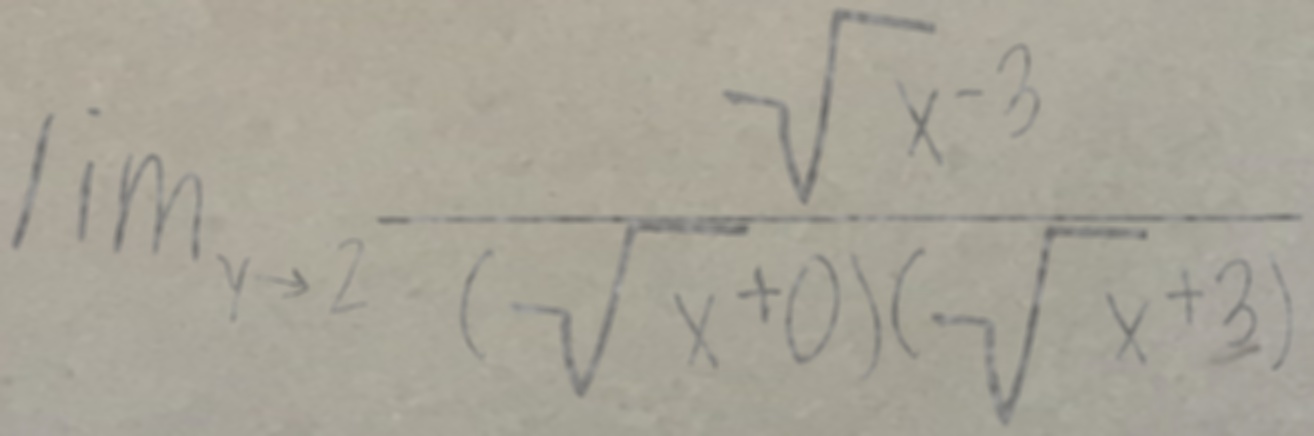 lim y→2 √x-3 / (√x+0)(√x+3)